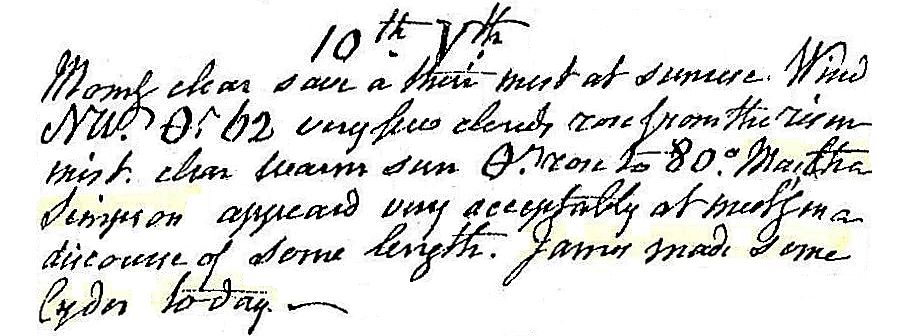 10th Vth
Morng clear save a thin mist at sunrise. Wind
NW. Or 62 very few clouds rose from the risen
mist. clear warm sun Or rose to 80° Martha
Simpson appeard very acceptably at meetg in a
discourse of some length. James made some
Cyder today. —